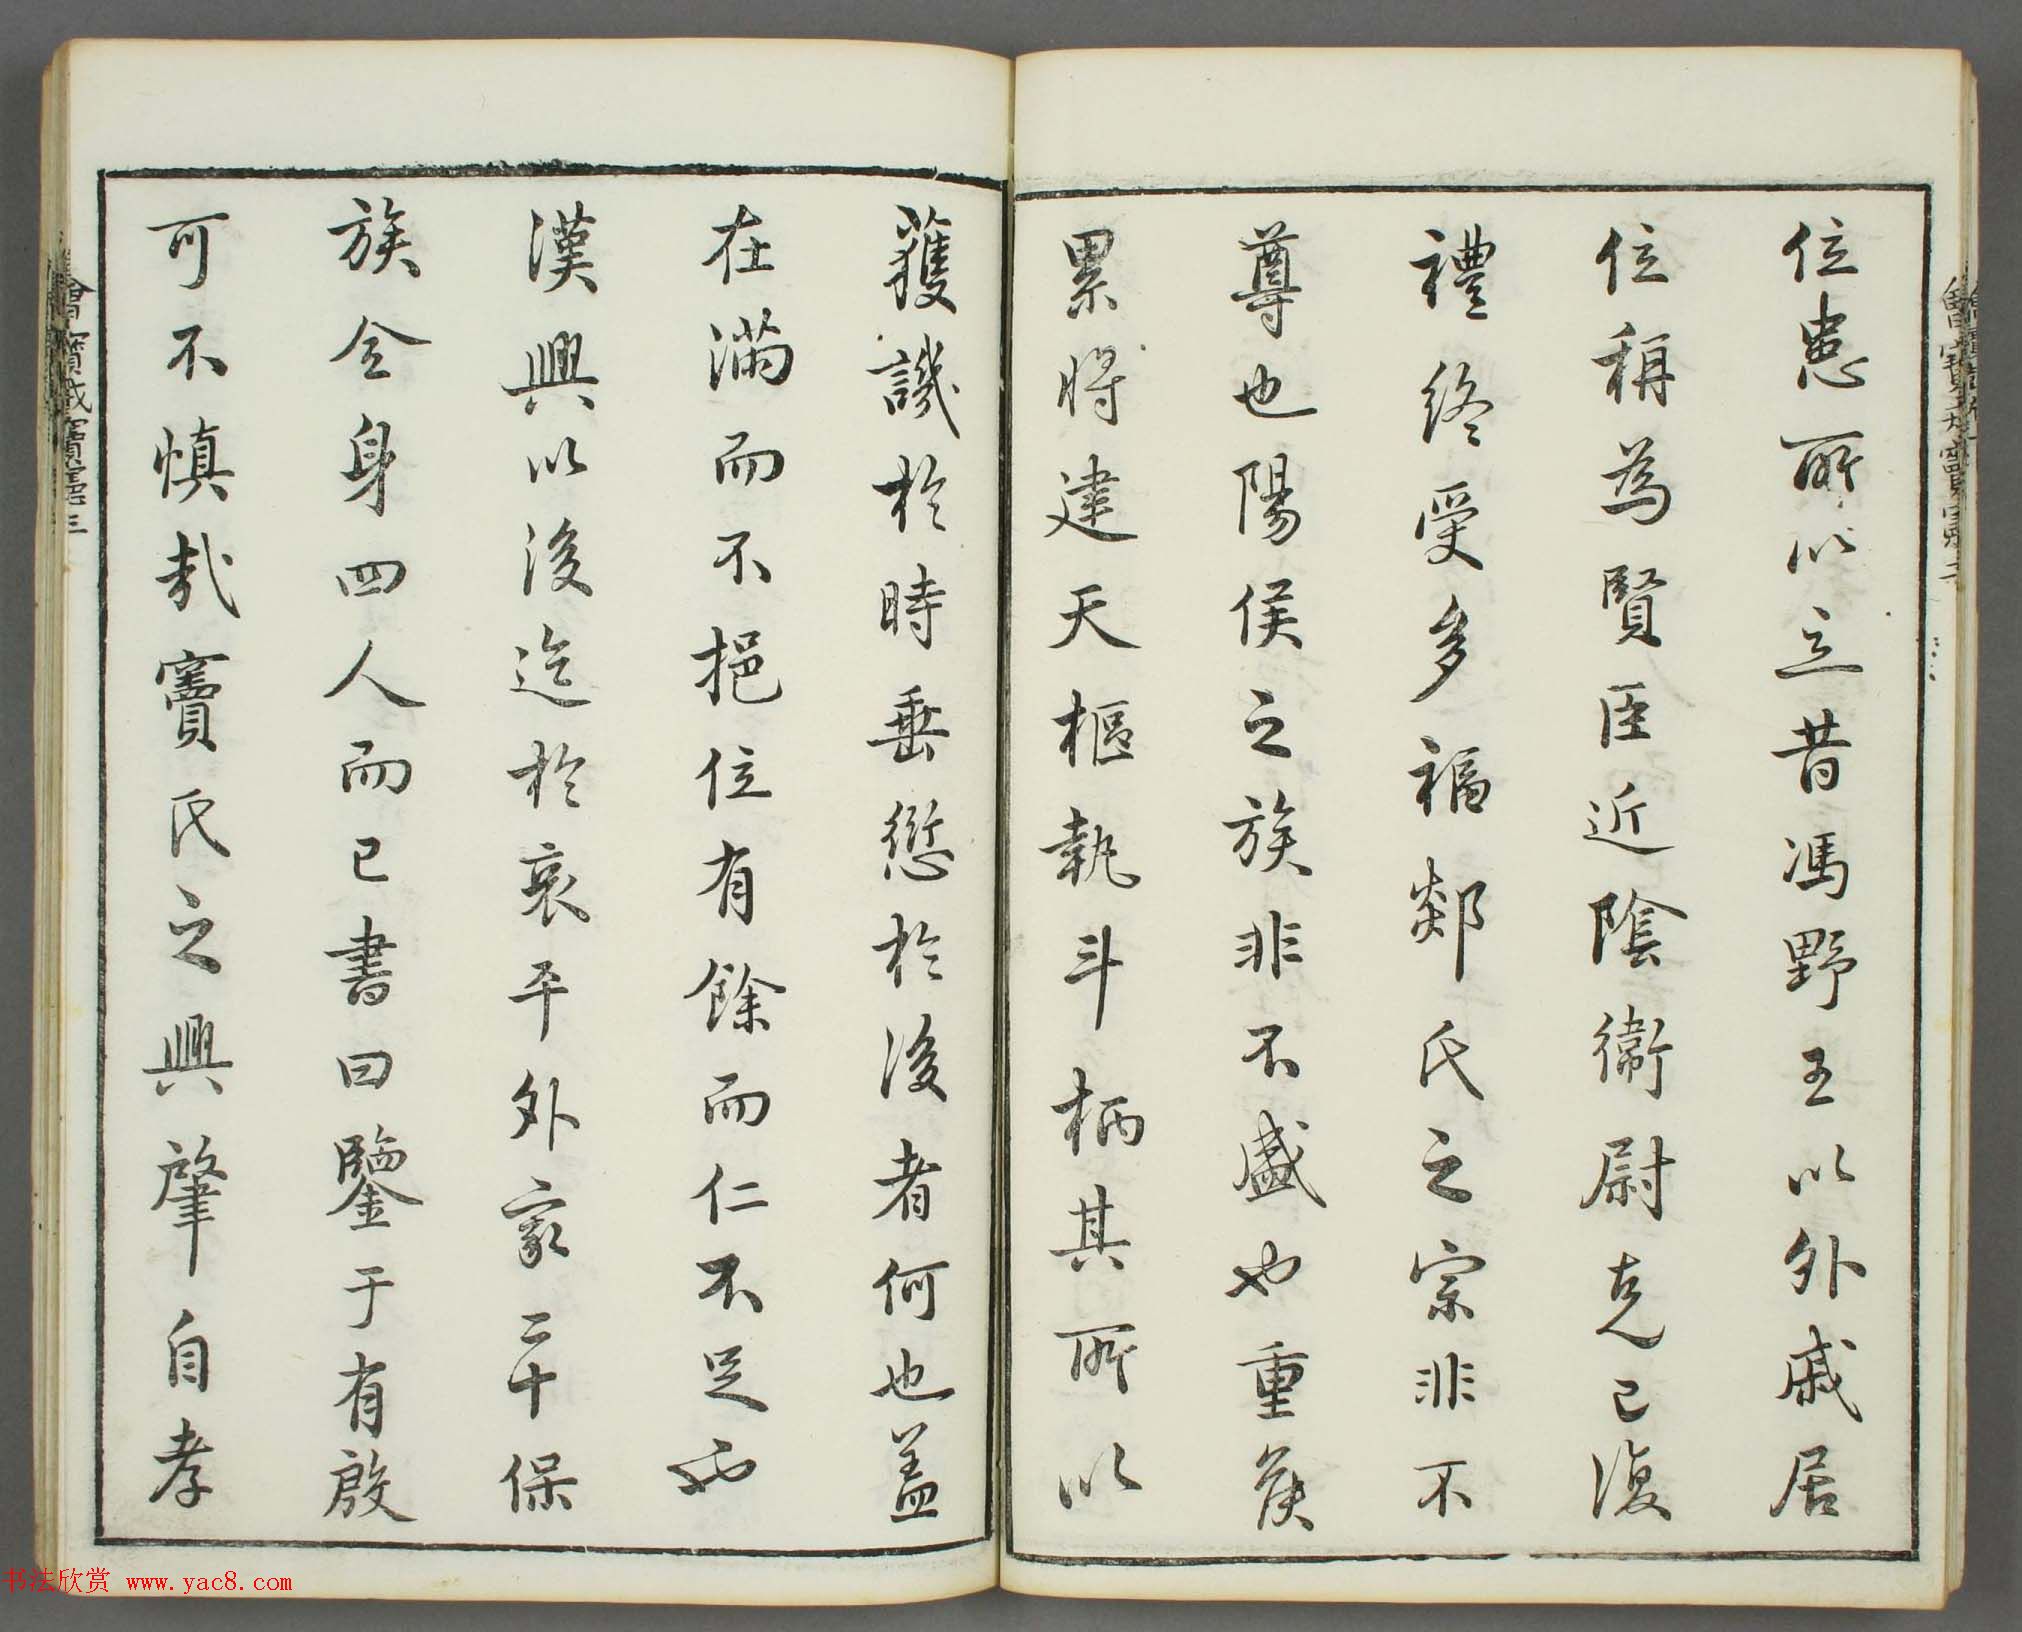 位患所以立昔馮野王以外戚居
位稱為賢臣近陰衞尉克己復
禮終受多福郯氏之宗非不
尊也陽侯之族非不盛也重侯
累將建天樞執斗柄其所以
獲譏於時垂愆於後者何也蓋
在滿而不挹位有餘而仁不足也
漢興以後迄於哀平外家二十保
族全身四人而已書曰鑒于有殷
可不慎哉竇氏之興肇自孝
書法欣赏 www.yac8.com